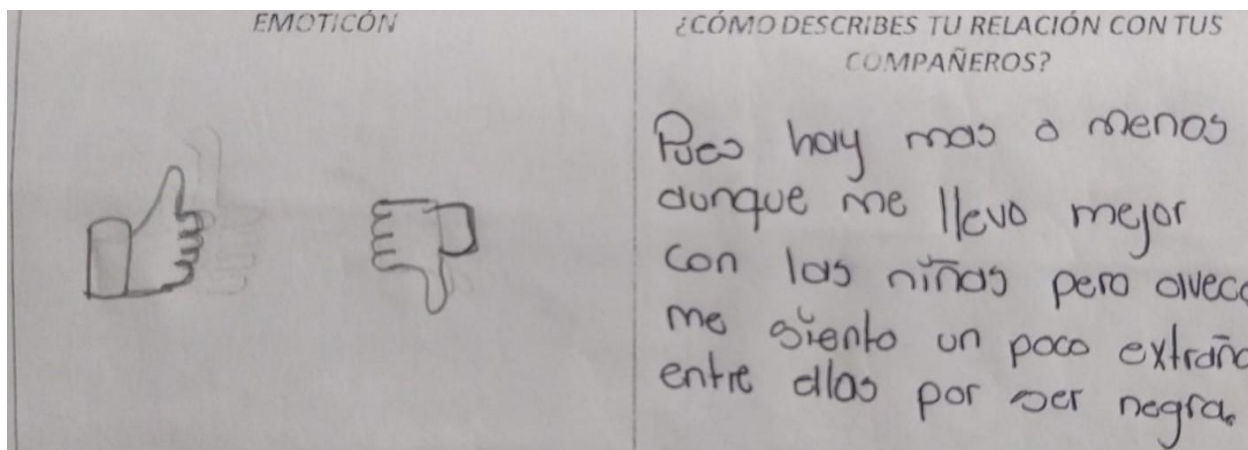 EMOTICÓN
¿CÓMO DESCRIBES TU RELACIÓN CON TUS
COMPAÑEROS?
Pues hay mas o menos
aunque me llevo mejor
con las niñas pero avece
me siento un poco extraña
entre ellas por ser negra.